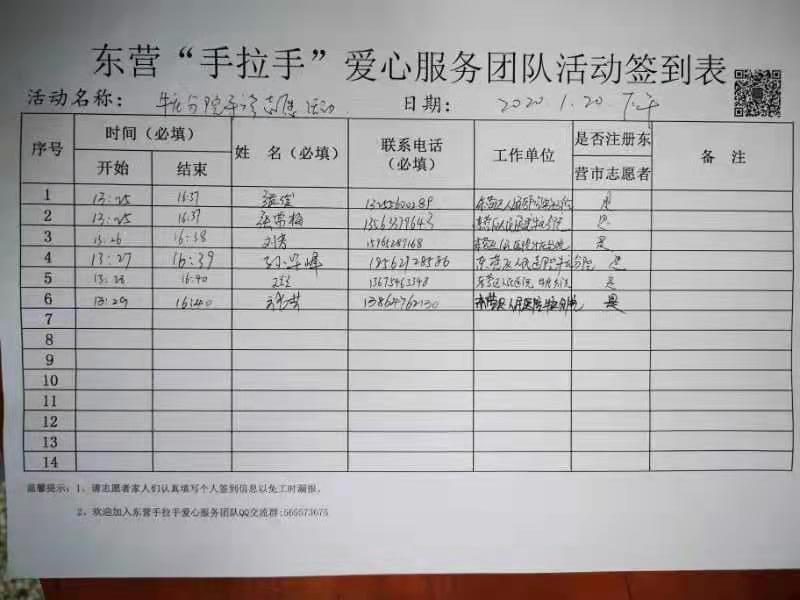 东营“手拉手”爱心服务团队活动签到表
活动名称： 牛庄分院 志愿活动 日期： 2020.1.20 下午
序号 时间（必填） 姓 名（必填） 联系电话（必填） 工作单位 是否注册东营市志愿者 备 注
开始 结束
1 13:25 16:37 13255600289 是
2 13:25 16:37 张常梅 是
3 13:26 16:38 刘芳 15965289168 是
4 13:27 16:39 孙学峰 18562128586 东营区人民医院牛庄分院 是
5 13:28 16:40 13675463348 东营区人民医院牛庄分院 是
6 13:29 16:40 13864762130 东营区人民医院牛庄分院 是
7
8
9
10
11
12
13
14
温馨提示：1、请志愿者家人们认真填写个人签到信息以免工时漏报。
2、欢迎加入东营手拉手爱心服务团队QQ交流群:565573675